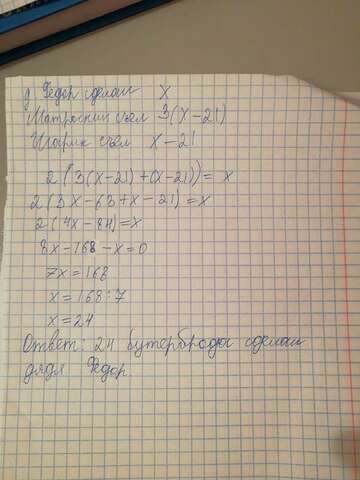 д. Федор сделал x
Матроскин съел 3(x-21)
Шарик съел x-21
2(3(x-21)+(x-21))=x
2(3x-63+x-21)=x
2(4x-84)=x
8x-168-x=0
7x=168
x=168:7
x=24
Ответ: 24 бутерброда сделал
дядя Федор.